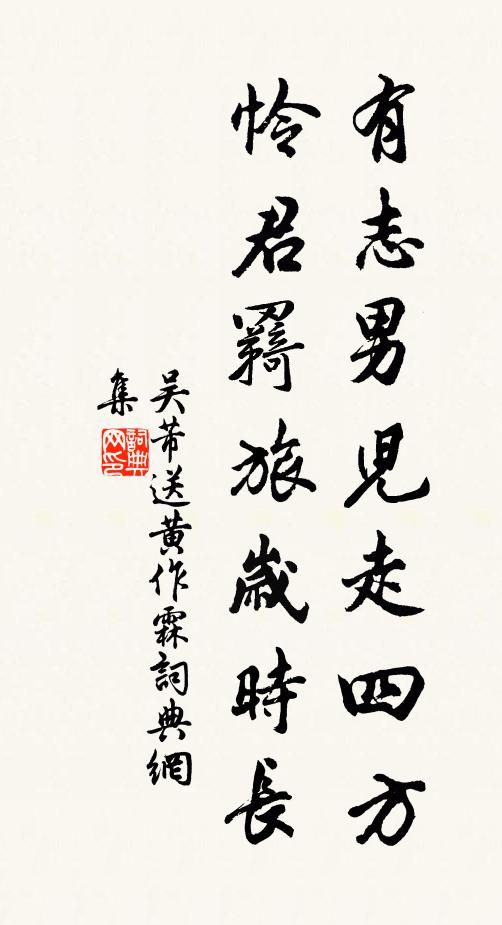 有志男児走四方
怜君羇旅歲時長
吴芾送黄作霖詞典網
集
詞典
网印